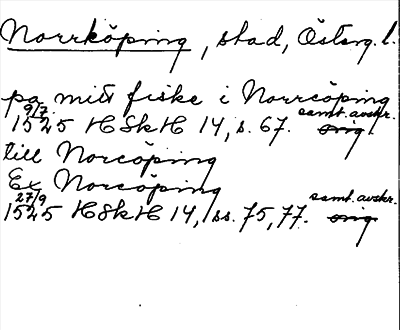 Norrköping, stad, Österg. l.
pa mitt fiske i Norrcöping
9/7 samt. avskr.
1525 HSkH 14, s. 67. orig.
till Norcöping
Ex Norcöping
27/9 samt. avskr.
1525 HSkH 14, ss. 75, 77. orig.